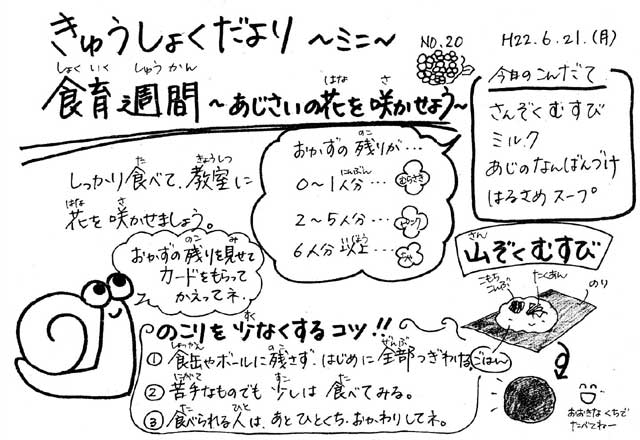 きゅうしょくだより ～ミニ～
NO.20
H22.6.21.(月)
食育週間 ～あじさいの花を咲かせよう～
しょくいく しゅうかん はな さ
今日のこんだて
さんぞくむすび
ミルク
あじのなんばんづけ
はるさめスープ
しっかり食べて、教室に
た きょうしつ
花を咲かせましょう。
はな さ
おかずの残りが…
のこ
0～1人分…むらさき
にんぶん
2～5人分…ピンク
6人分以上…
いじょう
おかずの残りを見せて
のこ み
カードをもらって
かえってネ.
山ぞくむすび
さん
こもち
こんぶ
たくあん
のり
ごはん
おおきなくちで
たべてねー
のこりを少なくするコツ!!
すく
① 食缶やボールに残さず、はじめに全部つぎわける。
しょっかん のこ ぜんぶ
② 苦手なものでも少しは食べてみる。
にがて すこ た
③ 食べられる人は、あとひとくち・おかわりしてネ。
た ひと